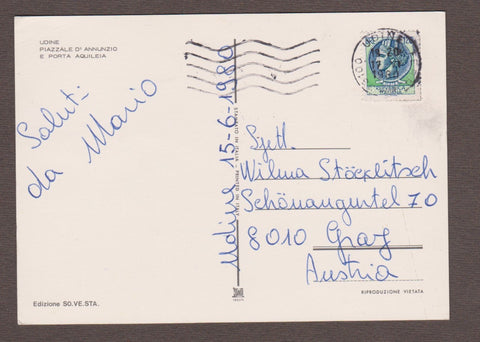 UDINE
PIAZZALE D'ANNUNZIO
E PORTA AQUILEIA
Saluti
da Mario
Udine 15-6-1980
Sgtl.
Wilma Stöcklitsch
Schönaugurtel 70
8010 Graz
Austria
Edizione SO.VE.STA.
RIPRODUZIONE VIETATA